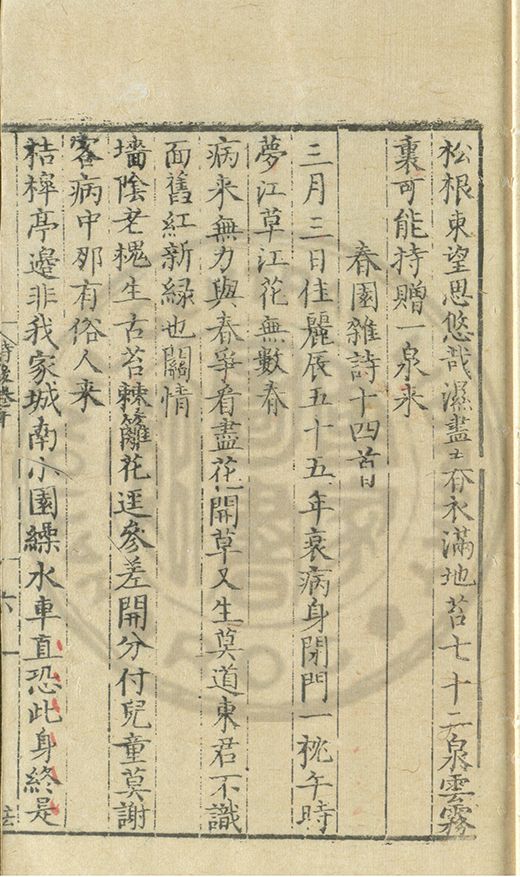 松根東望思悠哉濕盡春衣滿地苔七十二泉雲霧
裏可能持贈一泉來
春園雜詩十四首
三月三日佳麗辰五十五年衰病身閉門一枕午時
夢江草江花無數春
病来無力與春爭看盡花開草又生莫道東君不識
面舊紅新緑也關情
墻陰老槐生古苔棘籬花逕參差開分付兒童莫謝
客病中那有俗人来
桔槹亭邊非我家城南小園繰水車直恐此身終是